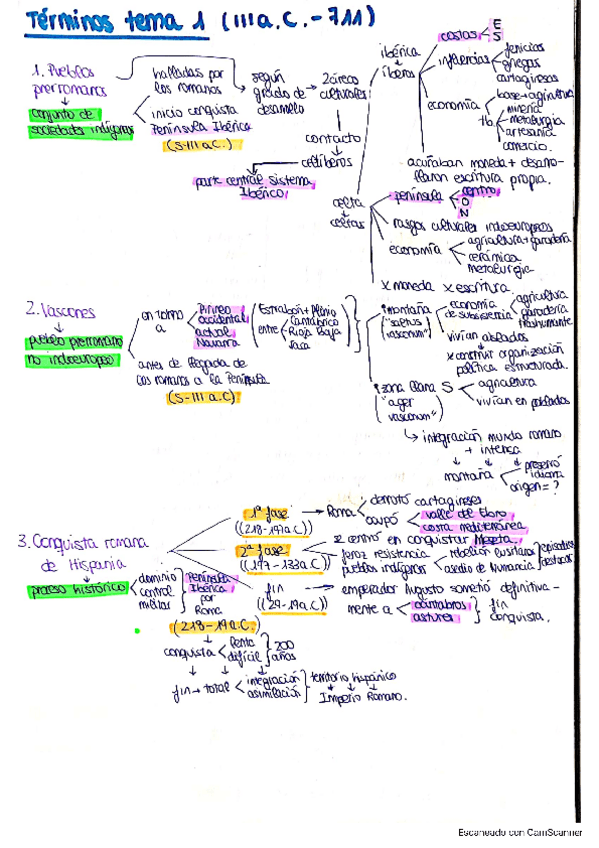 Términos tema 1 (III a.C. - 711)
1. Pueblos prerromanos
conjunto de sociedades indígenas
halladas por los romanos
inicio conquista Península Ibérica
(S-III a.C.)
según grado de desarrollo
2 áreas culturales
contacto
celtíberos
parte central sistema Ibérico
ibérica
íberos
costas
E
S
influencias
fenicias
griegas
cartaginesas
economía
base = agricultura
tb
minería
metalurgia
artesanía
comercio.
acuñaban moneda + desarrollaron escritura propia.
celta
celtas
península
centro
O
N
rasgos culturales indoeuropeos
economía
agricultura + ganadería
cerámica
metalurgia
x moneda x escritura.
2. Vascones
pueblo prerromano no indoeuropeo
en torno a
Pirineo occidental actual Navarra
Estrabón + Plinio
entre
Cantábrico
Rioja Baja
Jaca
antes de llegada de los romanos a la Península
(S-III a.C)
montaña
("saltus vasconum")
economía de subsistencia
agricultura
ganadería
trashumante
vivían aislados
x construir organización política estructurada.
zona llana S
("ager vasconum")
agricultura
vivían en poblados
integración mundo romano + intensa
montaña
preservó idioma
origen = ?
3. Conquista romana de Hispania
proceso histórico
dominio
control
militar
Península Ibérica por Roma
(218-19 a.C.)
conquista
lenta
difícil
200 años
fin → total
integración
asimilación
territorio hispánico
Imperio Romano.
1ª fase
((218-197 a.C.))
Roma
derrotó cartagineses
ocupó
valle del Ebro
costa mediterránea
2ª fase
((197-133 a.C.))
se centró en conquistar Meseta.
feroz resistencia pueblos indígenas
rebelión lusitanos
asedio de Numancia
episodios destacados
fin
((29-19 a.C))
emperador Augusto sometió definitivamente a
cántabros
astures
fin conquista.
Escaneado con CamScanner